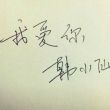 我爱你
韩小仙